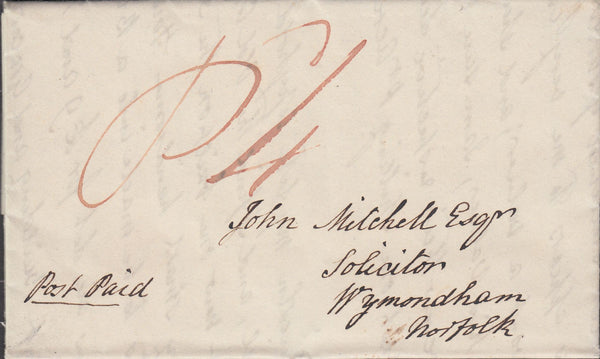 P4
John Mitchell Esqr
Solicitor
Wymondham
Norfolk
Post Paid